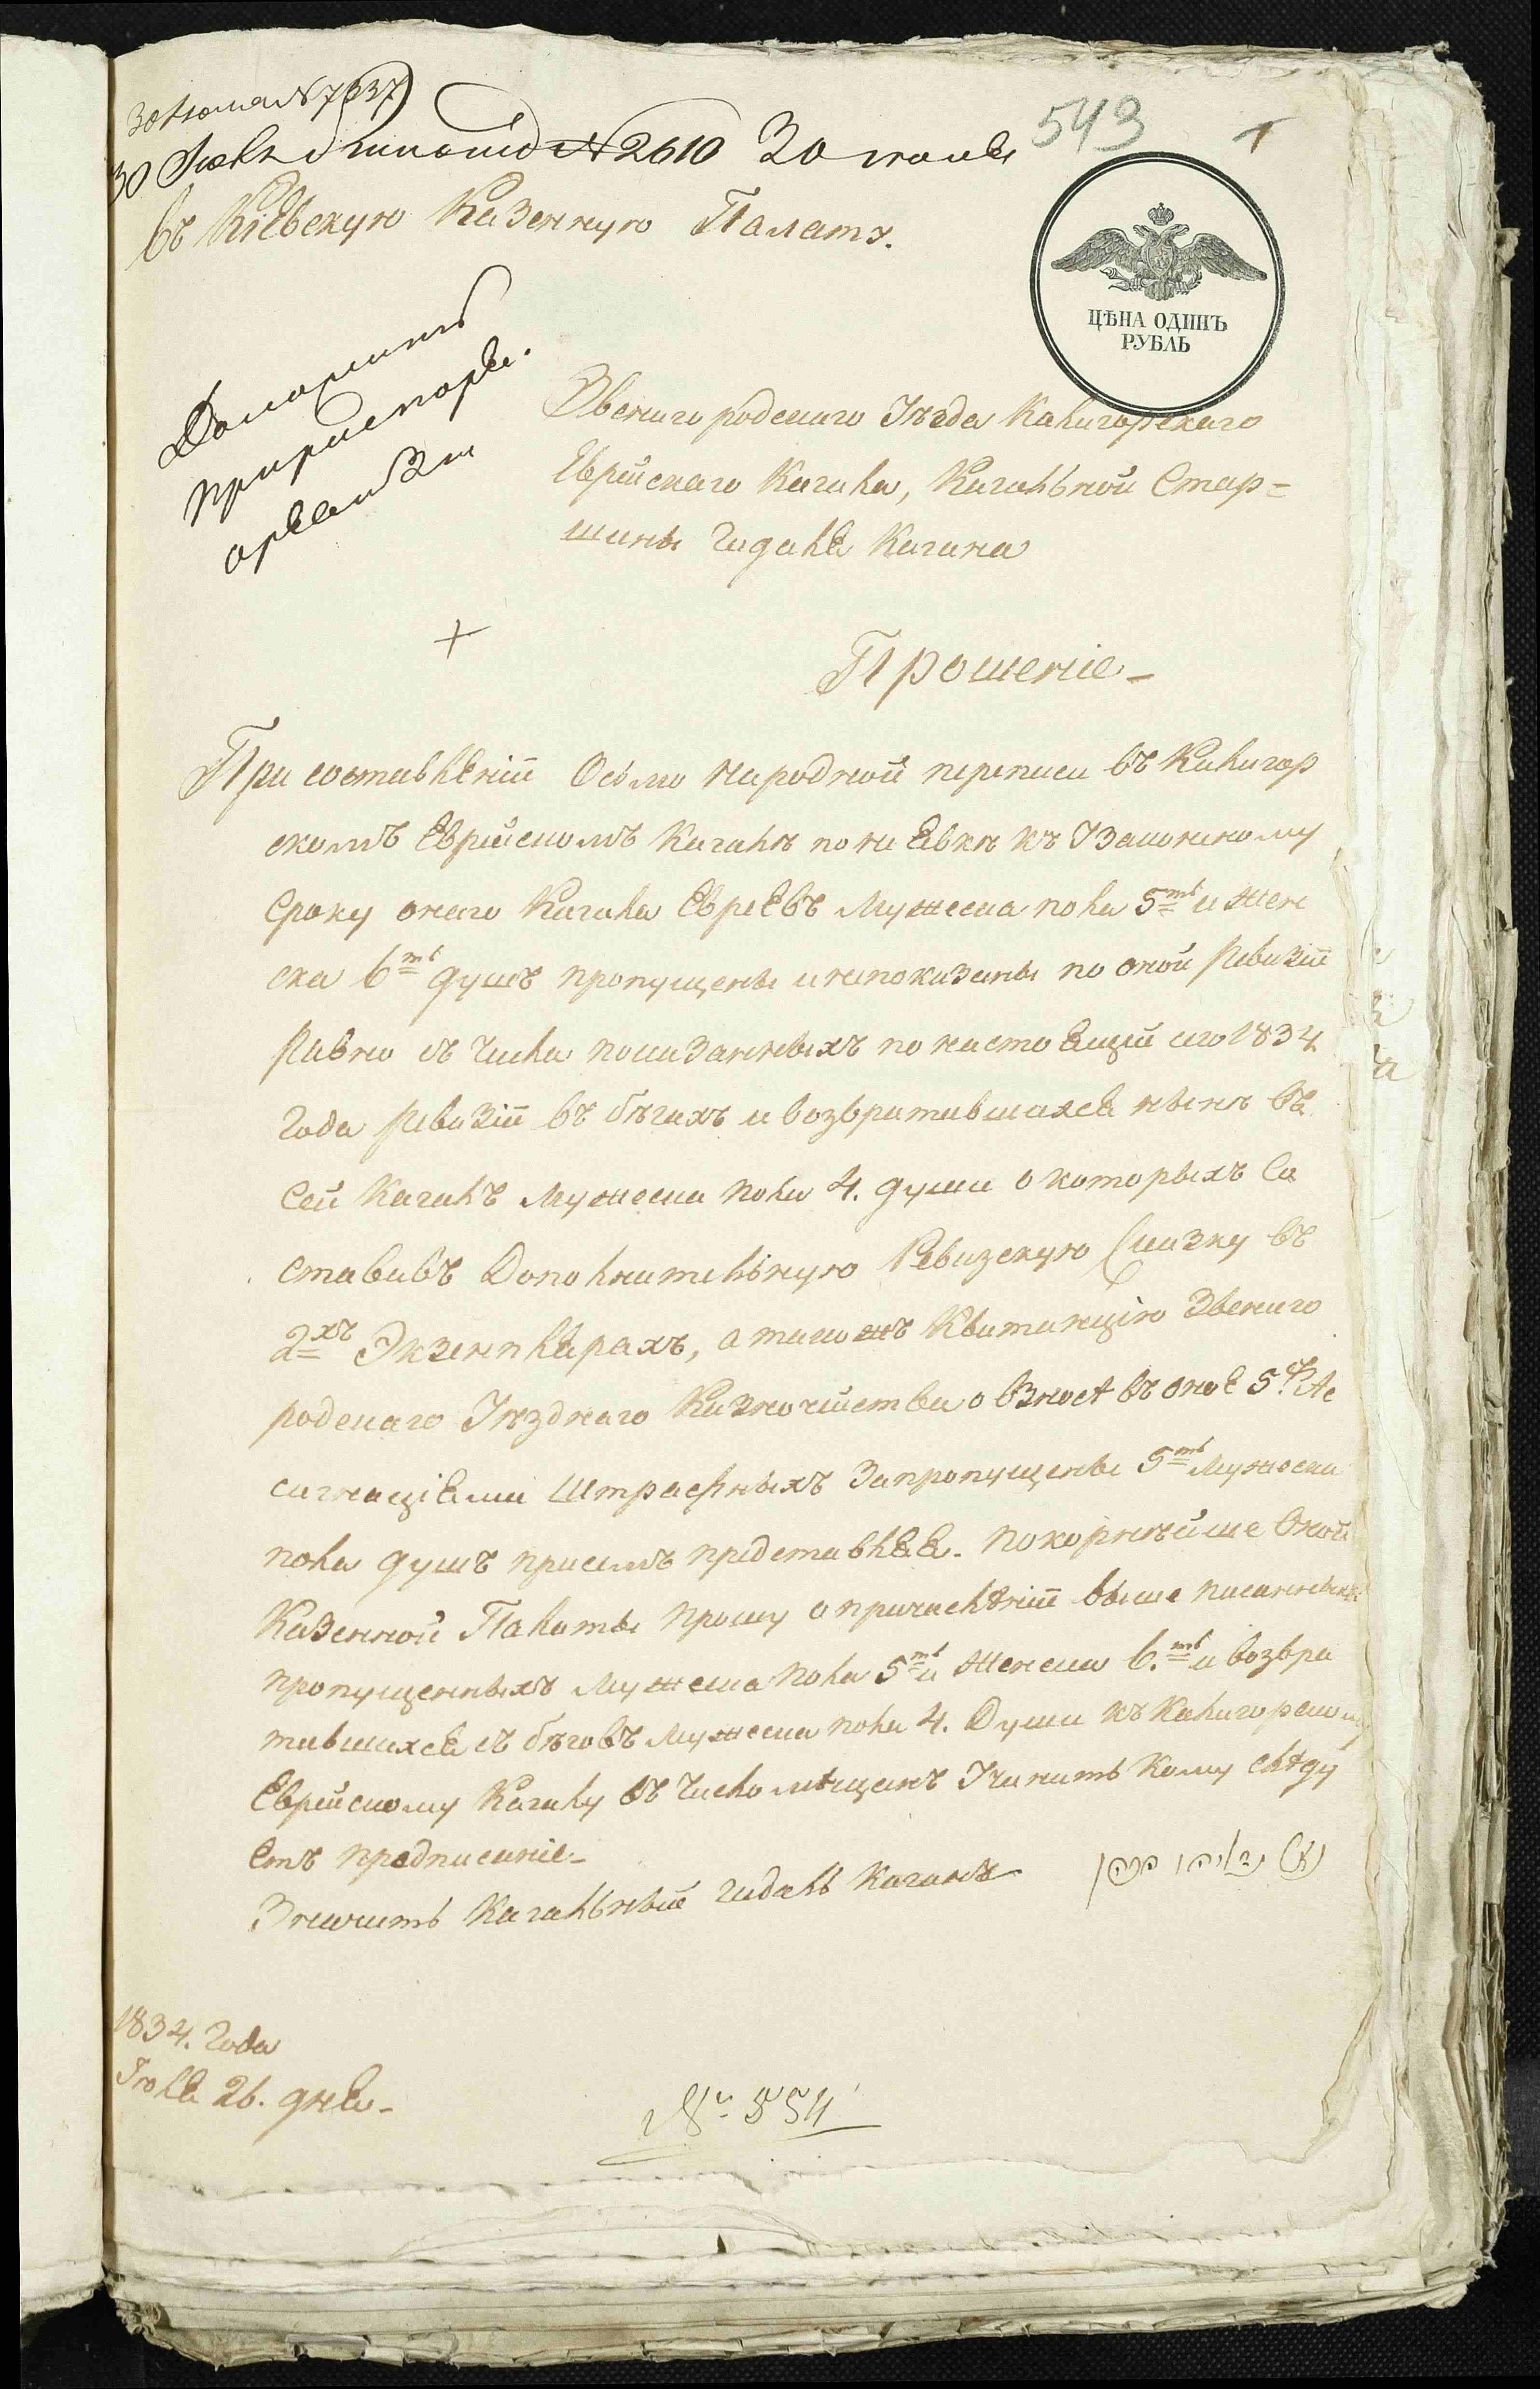 30 Июля № 7637
№ 2610 30 июля
543
Въ Кіевскую Казенную Палату.
ЦѢНА ОДИНЪ
РУБЛЬ
Доложить
при
Звенигородскаго Уѣзда Калигорскаго
Еврейскаго Кагала, Кагальной Стар=
шины Гидаля Кагана
Прошеніе
При составленіи Осьмо народной переписи въ Калигор
скомъ Еврейскомъ Кагалѣ по не Явкѣ къ Узаконеному
Сроку онаго Кагала Евреѣвъ Мужеска пола 5ть и Жен
ска 6ть душъ пропущены и непоказаны по оной Ревизіи
Равно съ Числа показанныхъ по настоящій сего 1834
Года Ревизіи въ бѣгахъ и возвратившихся нынѣ въ
Сей Кагалъ Мужеска пола 4. души о которыхъ Со
ставивъ Дополнительную Ревизскую Сказку въ
2хъ Экземплярахъ, а такожъ Квитанцію Звениго
родскаго Уѣзднаго Казначейства о Взносѣ въ оное 5. Ас
сигнаціями Штрафныхъ За пропущены 5ть Мужеска
пола душъ присемъ представляя. покорнѣйше Оной
Казенной Палаты прошу о причисленіи выше писанныхъ
пропущенныхъ Мужеска пола 5ть и Женска 6.ть и возвра
тившихся съ бѣговъ Мужеска пола 4. Души къ Калигорскому
Еврейскому Кагалу въ Число мѣщанъ Учинить Кому слѣду
Етъ предписаніе
Значитъ Кагальный Гидаль Каганъ
1834. Года
Іюля 26. дня
№ 554